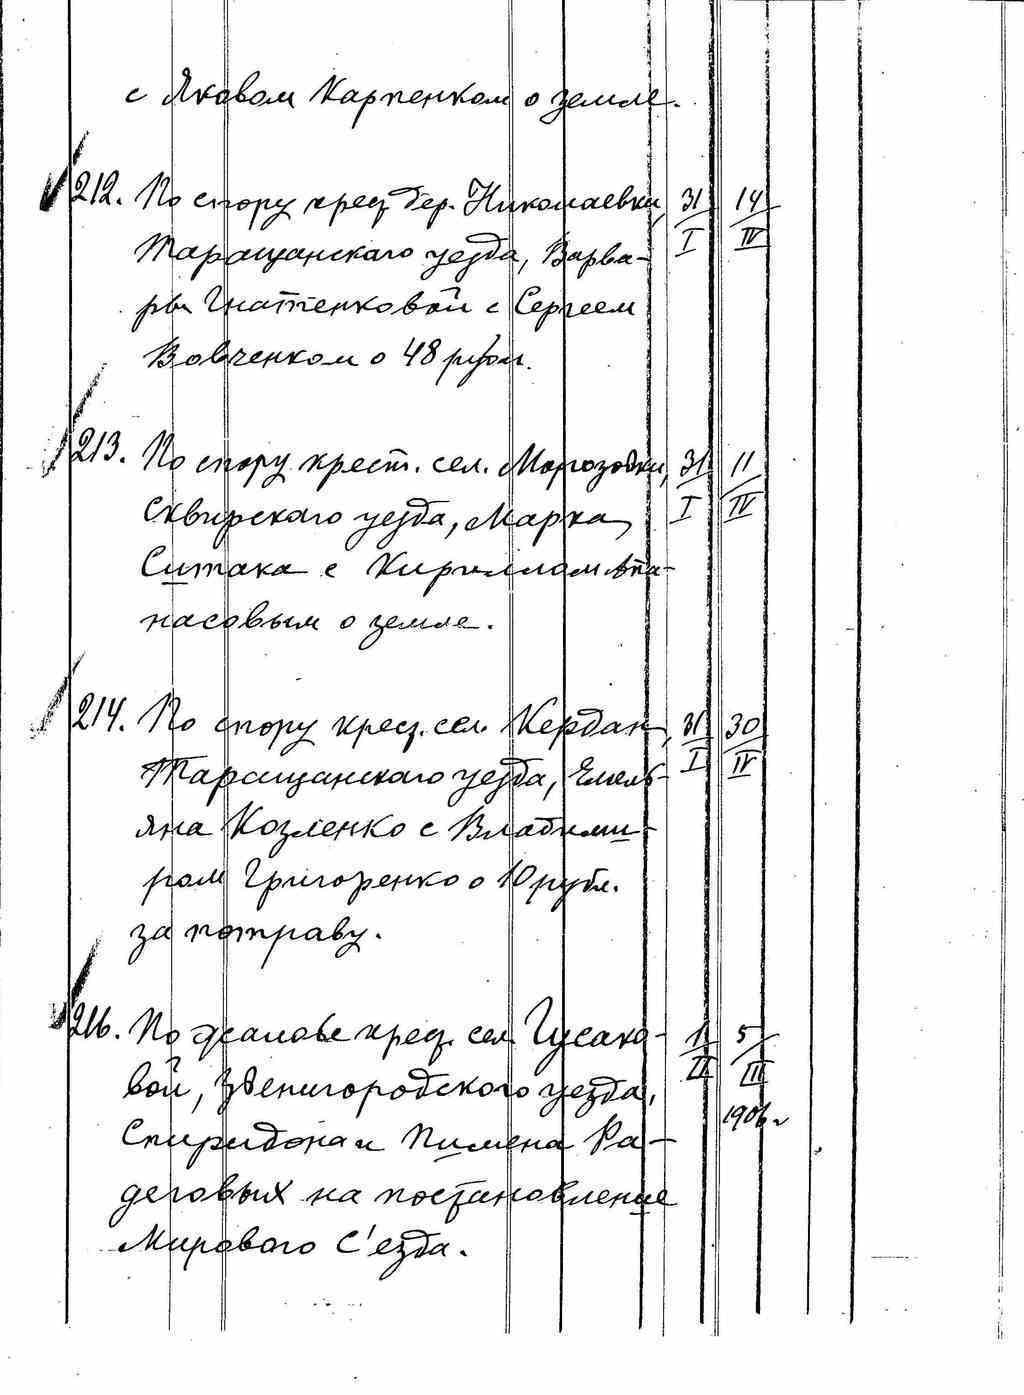 с Яковом Карпенком о земле.
212. По спору крест. дер. Николаевки, 31/I 14/IV
Таращанского уезда, Варва-
ры Гнатенковой с Сергеем
Вовченком о 48 рубл.
213. По спору крест. сел. Морозовки, 31/I 11/IV
Сквирского уезда, Марка
Ситака с Кириллом Апа-
насовым о земле.
214. По спору крест. сел. Кердан, 31/I 30/IV
Таращанского уезда, Емель-
яна Козленко с Владими-
ром Григоренко о 10 рубл.
за потраву.
216. По жалобе крест. сел. Гусако- 1/II 5/III
вой, Звенигородского уезда, 1906 г
Спиридона и Пимена Ра-
деговых на постановление
Мирового С'езда.